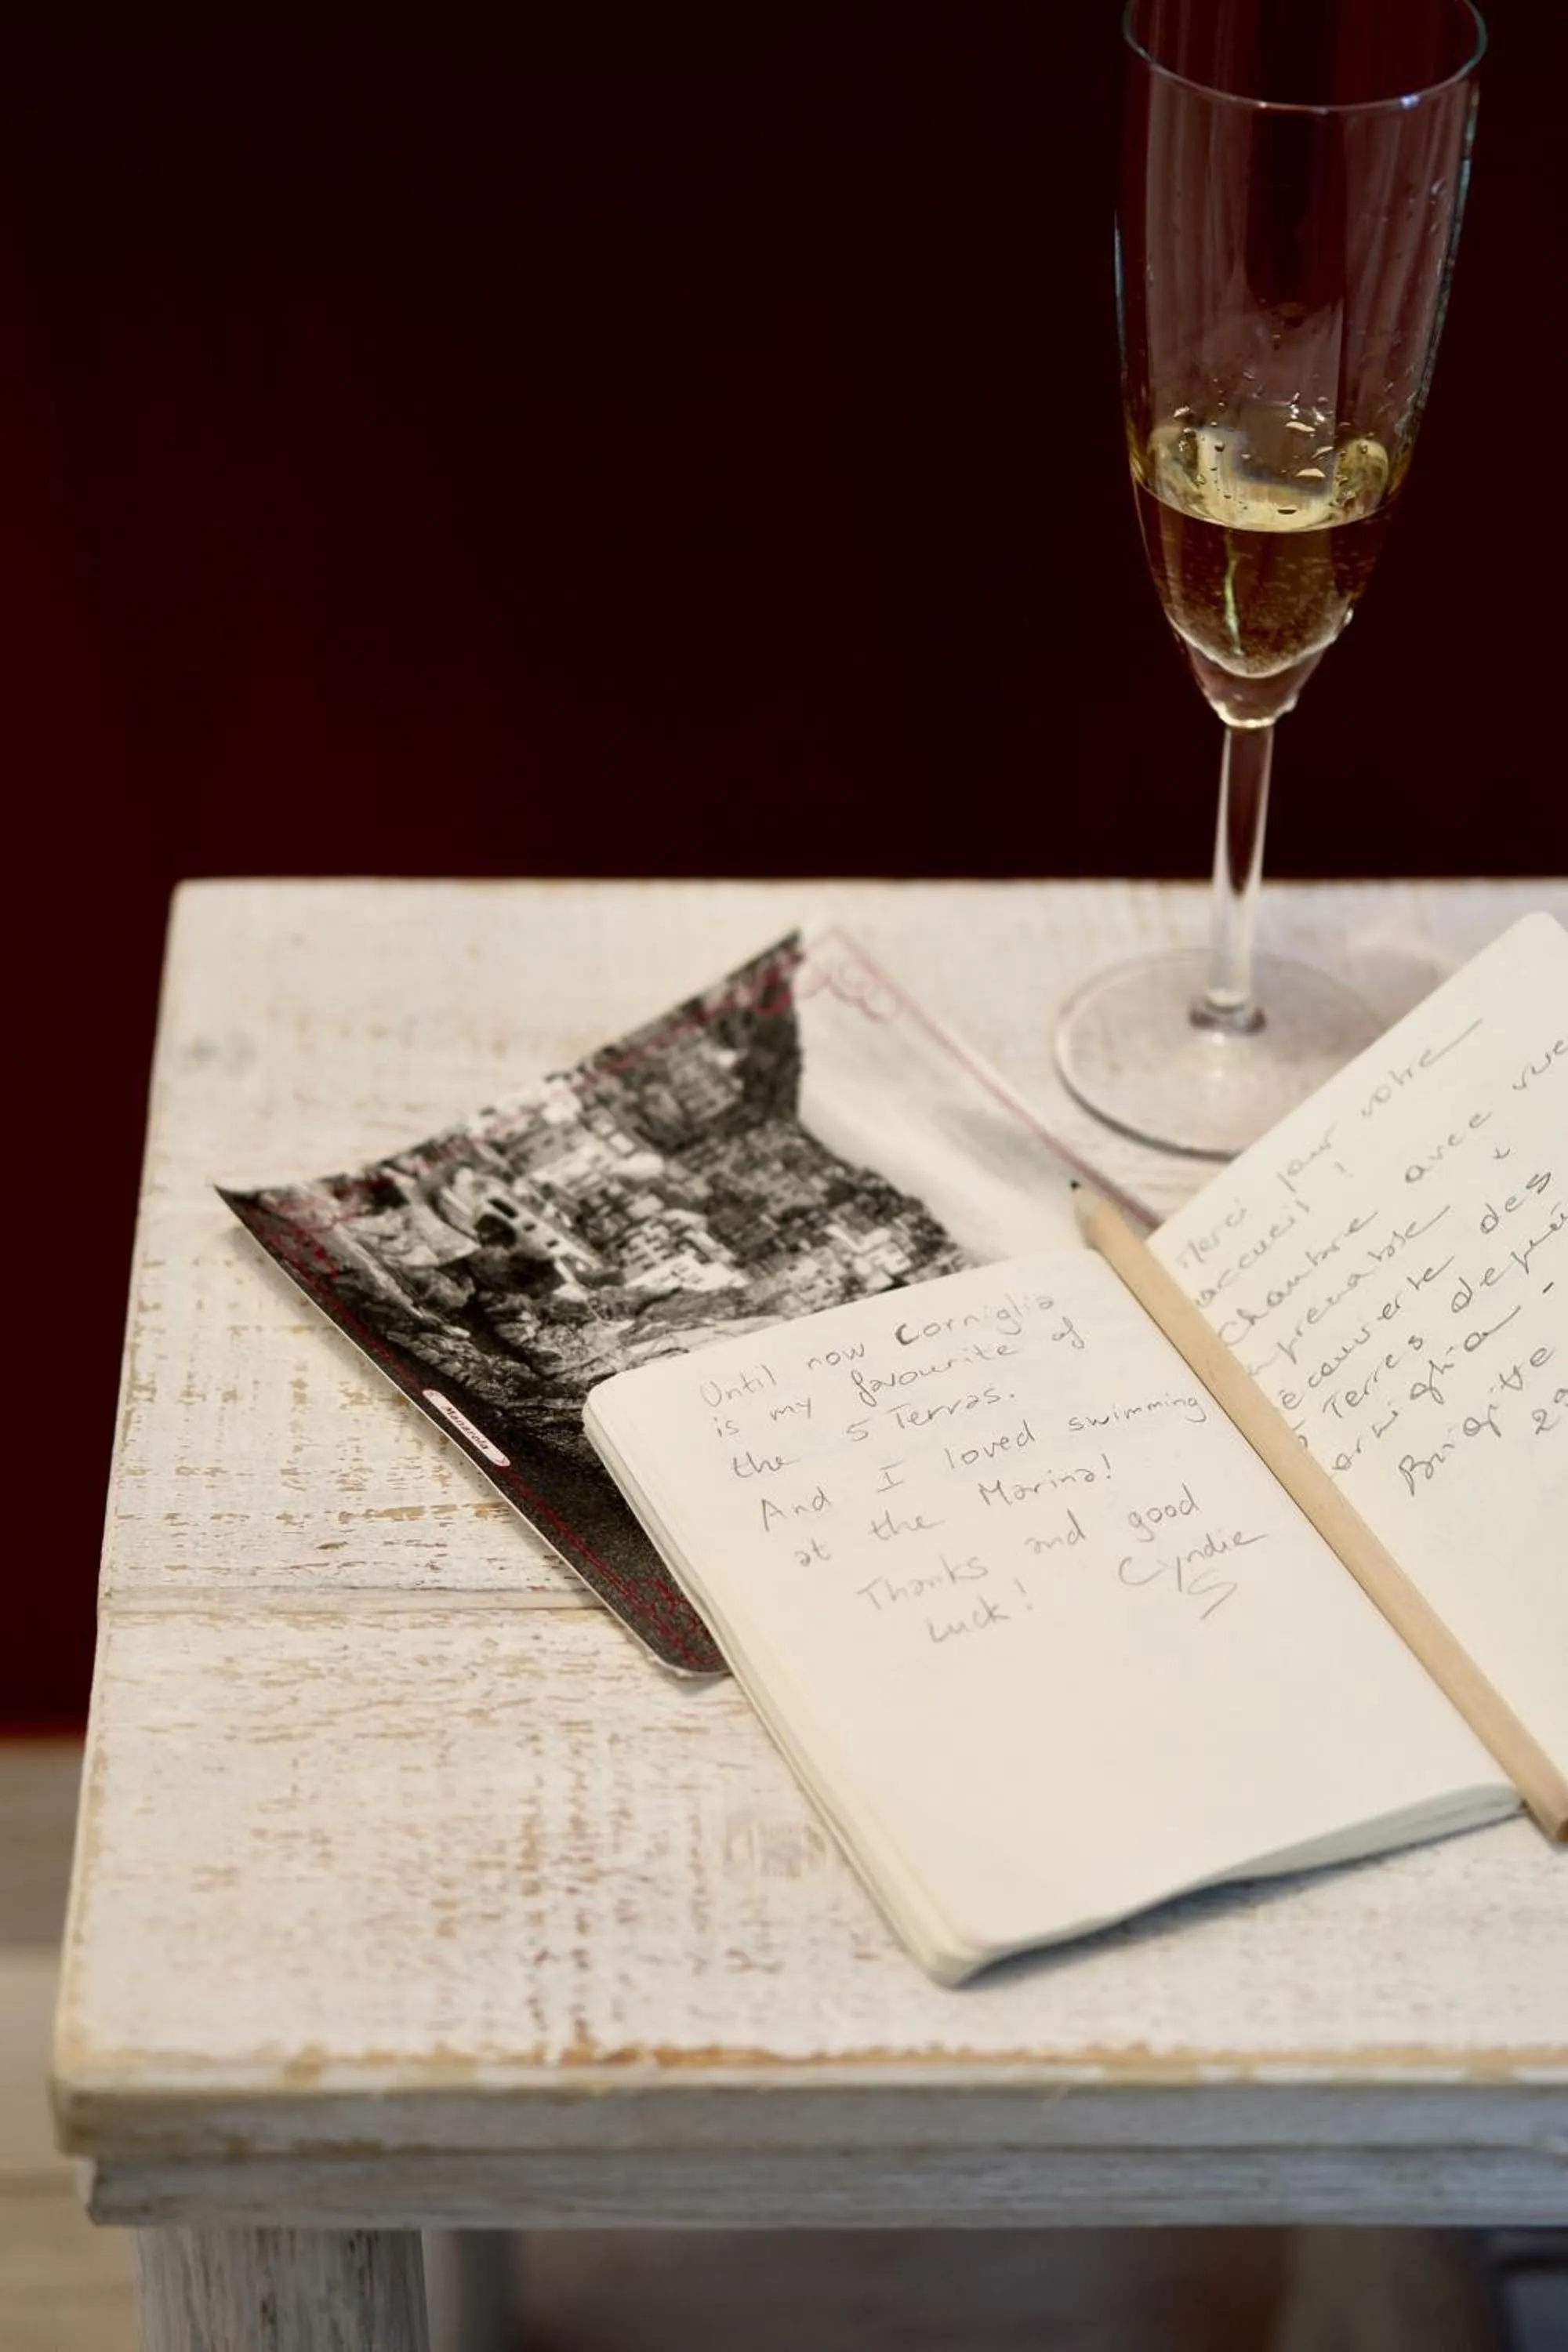 Manarola
Until now Corniglia
is my favourite of
the 5 Terras.
And I loved swimming
at the Marina!
Thanks and good
Luck! Cyndie
Merci pour votre
accueil!
chambre avec vue
imprenable
écouverte des
5 Terres depuis
orniglia -
Brigitte